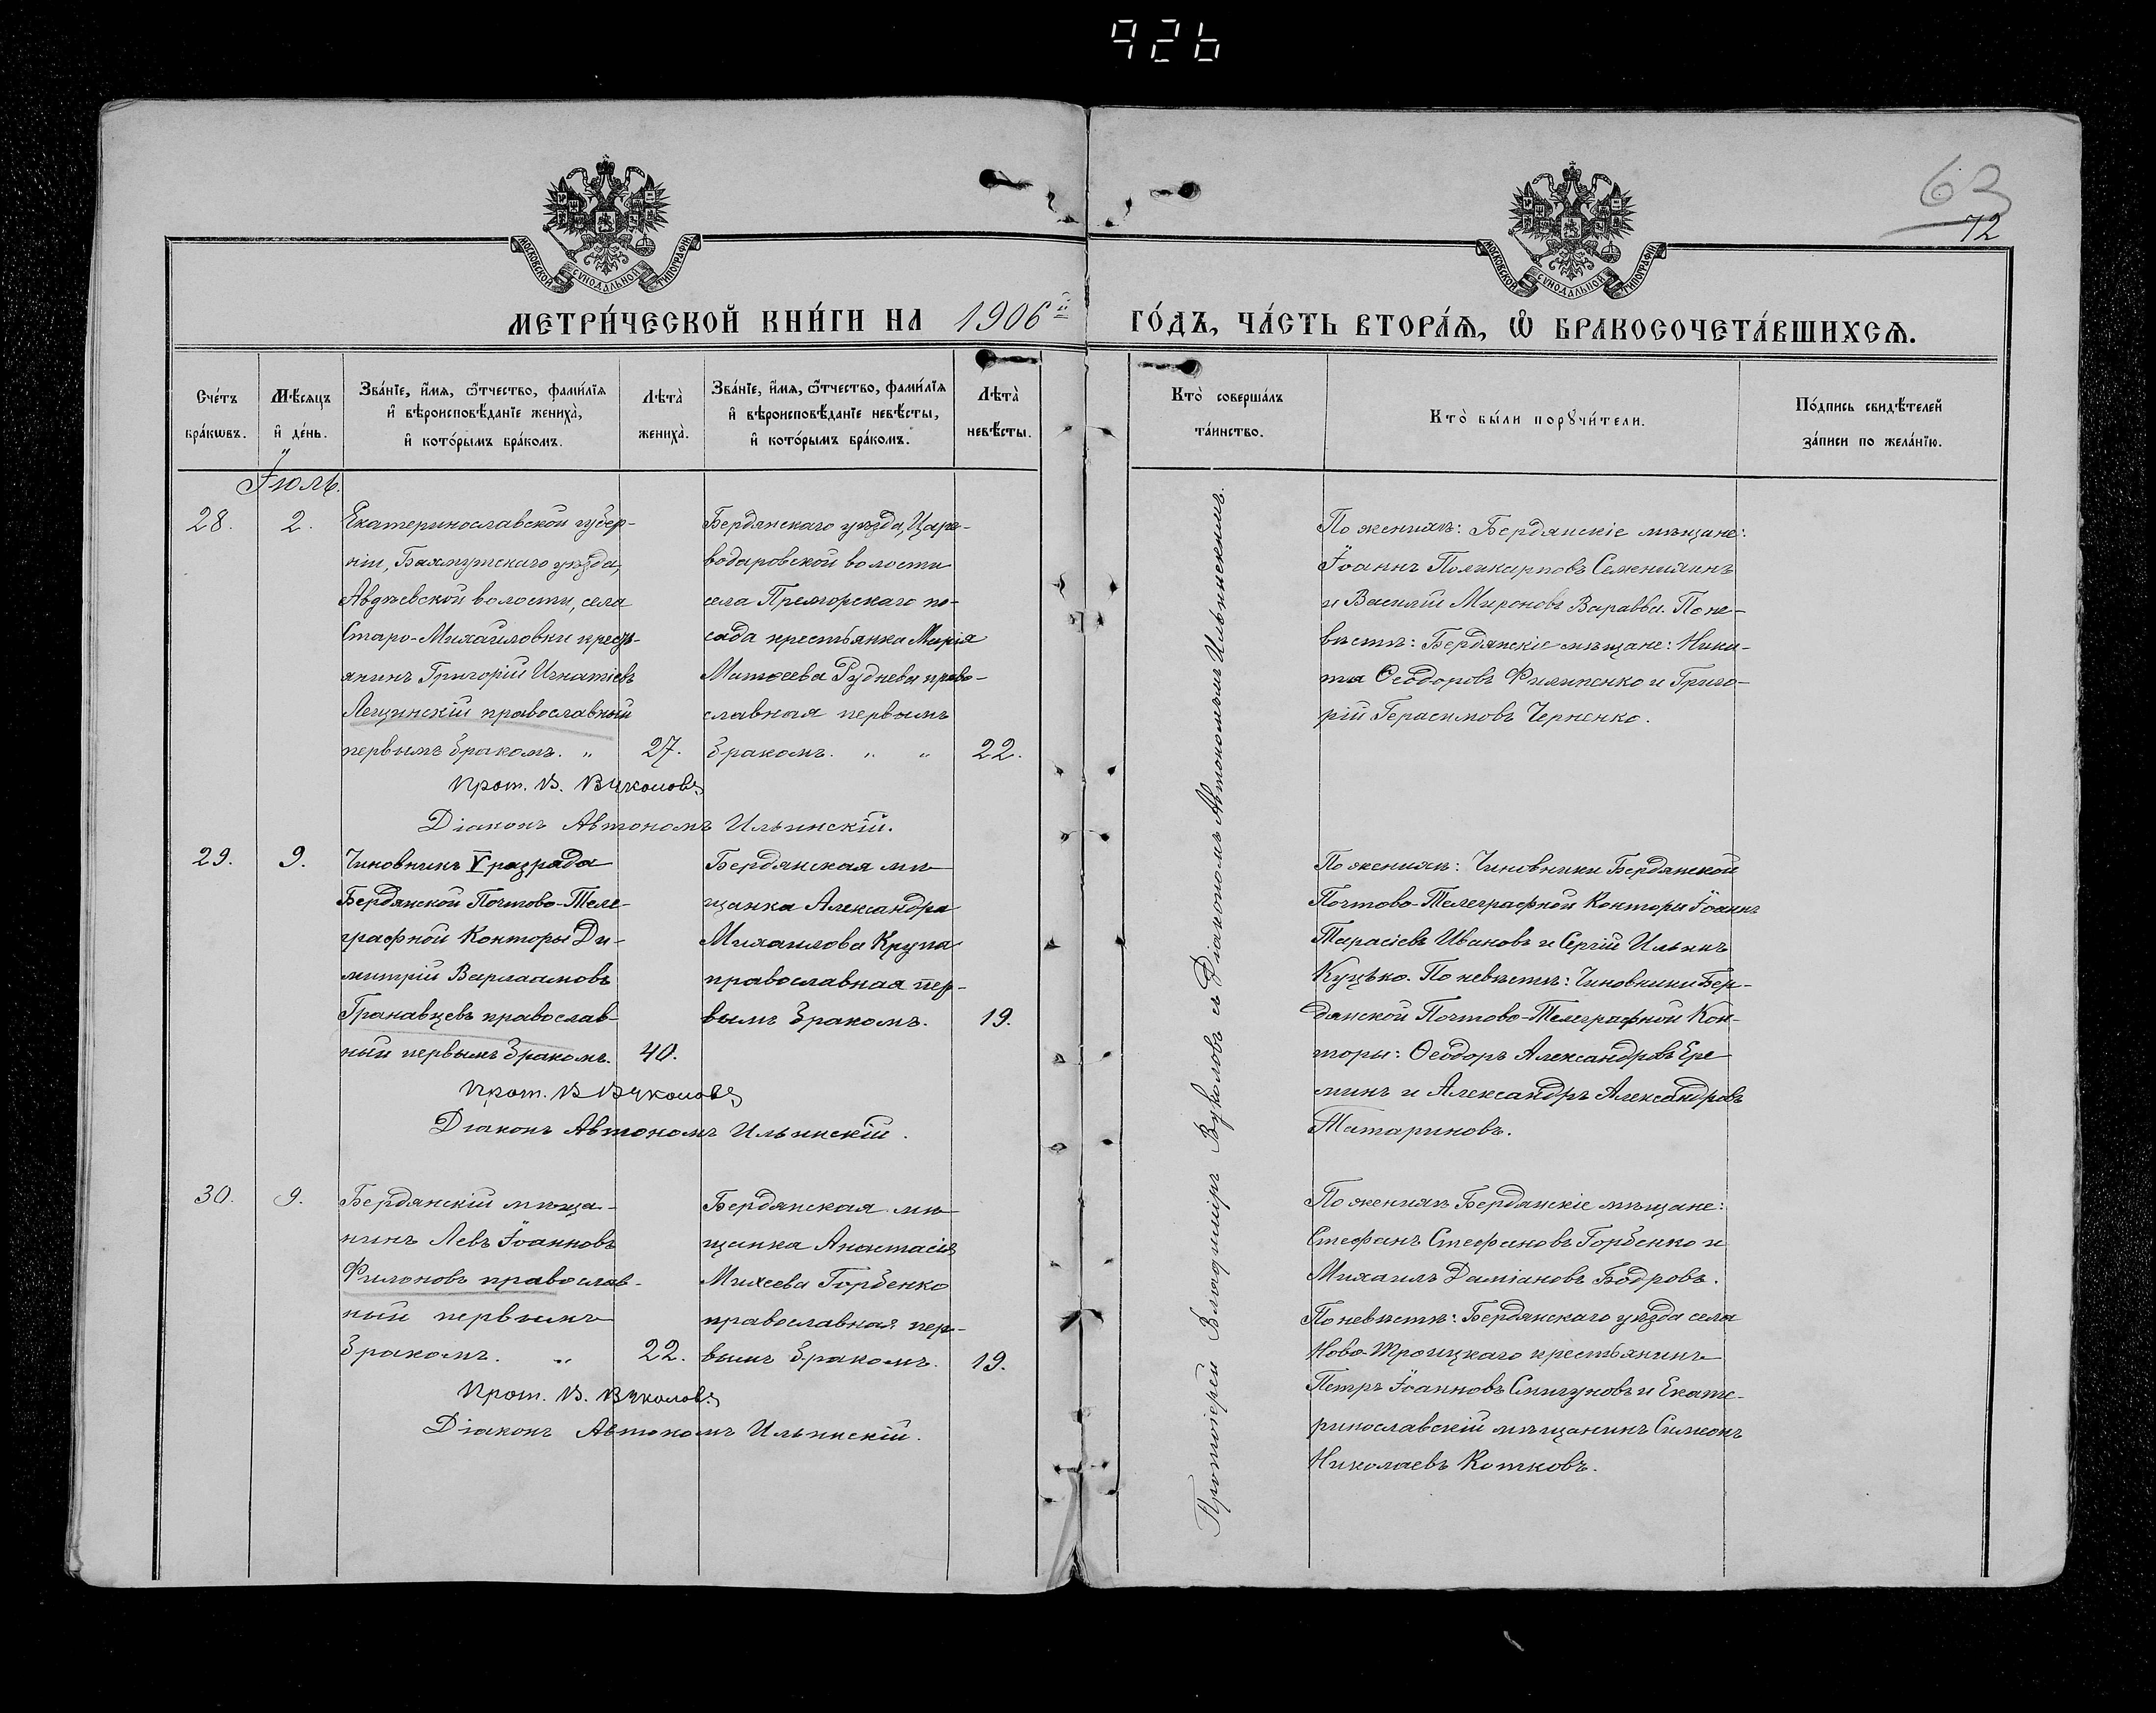 926
63
72
МОСКОВСКОЙ СѴНОДАЛЬНОЙ ТИПОГРАФІИ
МОСКОВСКОЙ СѴНОДАЛЬНОЙ ТИПОГРАФІИ
МЕТРИ́ЧЕСКОЙ КНИ́ГИ НА 1906й ГО́ДЪ, ЧА́СТЬ ВТОРА́Ѧ, Ѡ БРАКОСОЧЕТА́ВШИХСѦ.
Сче́тъ
бра́кѡвъ.
Мѣ́сяцъ
и҆ де́нь.
Зва́нїе, и҆́мѧ, ѻ҆́тчество, фами́лїѧ
и҆ вѣроисповѣ́данїе жениха̀,
и҆ кото́рымъ бра́комъ.
Лѣта̀
жениха̀.
Зва́нїе, и҆́мѧ, ѻ҆́тчество, фами́лїѧ
и҆ вѣроисповѣ́данїе невѣ́сты,
и҆ кото́рымъ бра́комъ.
Лѣта̀
невѣ́сты.
Кто̀ соверша́лъ
та́инство.
Кто̀ бы́ли порꙋчи́тели.
По́дпись свидѣ́телей
за́писи по жела́нїю.
Іюль.
28.
2.
Екатеринославской губер-
ніи, Бахмутскаго уѣзда,
Авдѣевской волости, села
Старо-Михайловки крест-
янинъ Григорій Игнатіевъ
Лещинскій православный
первымъ бракомъ. „
27.
Бердянскаго уѣзда, Царе-
водаровской волости
села Преморскаго по-
сада крестьянка Марія
Матѳеева Руднева право-
славная первымъ
бракомъ. „ „
22.
Прот. В. Вуколовъ
Діаконъ Автономъ Ильинскій.
По женихѣ: Бердянскіе мѣщане:
Іоаннъ Поликарповъ Семенихинъ
и Василій Мироновъ Варавви. По не-
вѣстѣ: Бердянскіе мѣщане: Ники-
та Ѳеодоровъ Филипенко и Григо-
рій Герасимовъ Черненко.
29.
9.
Чиновникъ V разряда
Бердянской Почтово-Теле-
графной Конторы Ди-
митрій Варлаамовъ
Гранавцевъ православ-
ный первымъ бракомъ.
40.
Бердянская мѣ-
щанка Александра
Михаилова Крупа
православная пер-
вымъ бракомъ.
19.
Прот. В Вуколовъ
Діаконъ Автономъ Ильинскій.
По женихѣ: Чиновники Бердянской
Почтово-Телеграфной Конторы Іоаннъ
Тарасіевъ Ивановъ и Сергій Ильинъ
Куцько. По невѣстѣ: Чиновники Бер-
дянской Почтово-Телеграфной Кон-
торы: Ѳеодоръ Александровъ Ере
минъ и Александръ Александровъ
Татариновъ.
30.
9.
Бердянскій мѣща-
нинъ Левъ Іоанновъ
Филоновъ православ-
ный первымъ
бракомъ. „
22.
Бердянская мѣ-
щанка Анастасія
Михеева Горбенко
православная пер-
вымъ бракомъ.
19.
Прот. В. Вуколовъ
Діаконъ Автономъ Ильинскій.
По женихѣ Бердянскіе мѣщане:
Стефанъ Стефановъ Горбенко и
Михаилъ Даміановъ Бодровъ.
По невѣстѣ: Бердянскаго уѣзда села
Ново-Троицкаго крестьянинъ
Петръ Іоанновъ Смигуновъ и Екате-
ринославскій мѣщанинъ Симеонъ
Николаевъ Котковъ.
Протоіерей Владимиръ Вуколовъ съ Діакономъ Автономомъ Ильинскимъ.